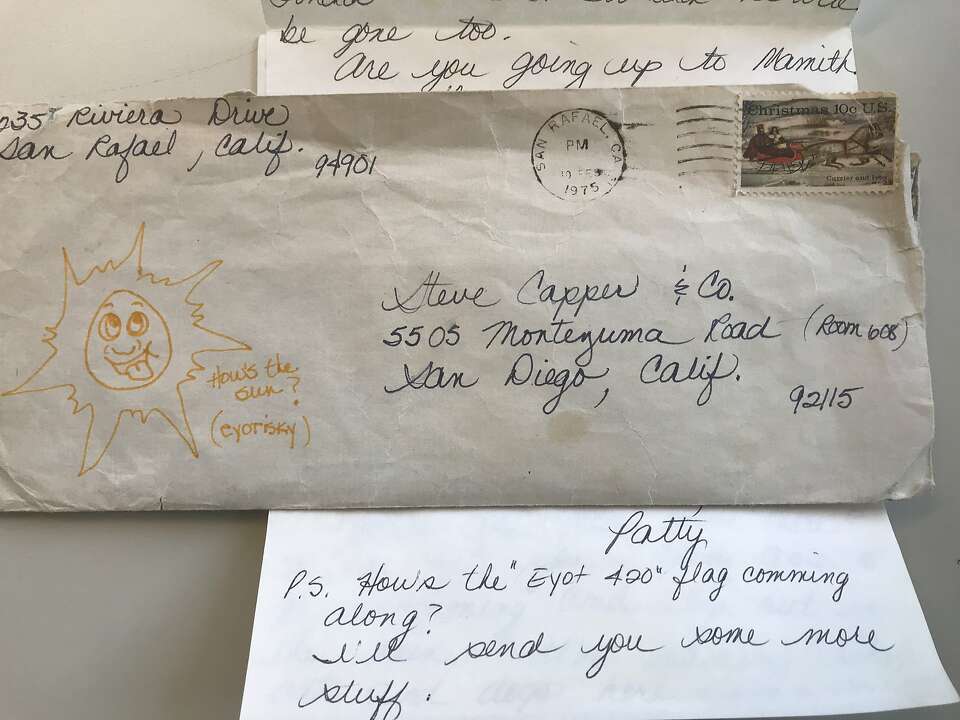 be gone too.
Are you going up to Mamith
235 Riviera Drive
San Rafael, Calif.
94901
SAN RAFAEL, CA
PM
1975
Christmas 10c U.S.
Currier and Ives
Steve Capper & Co.
5505 Montezuma Road (Room 608)
San Diego, Calif.
92115
How's the
sun?
(eyotisky)
Patty
P.S. How's the "Eyot 420" flag comming
along?
I'll send you some more
stuff.